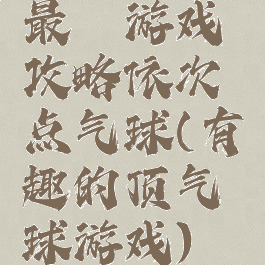 最 游戏
攻略依次
点气球(有
趣的顶气
球游戏)